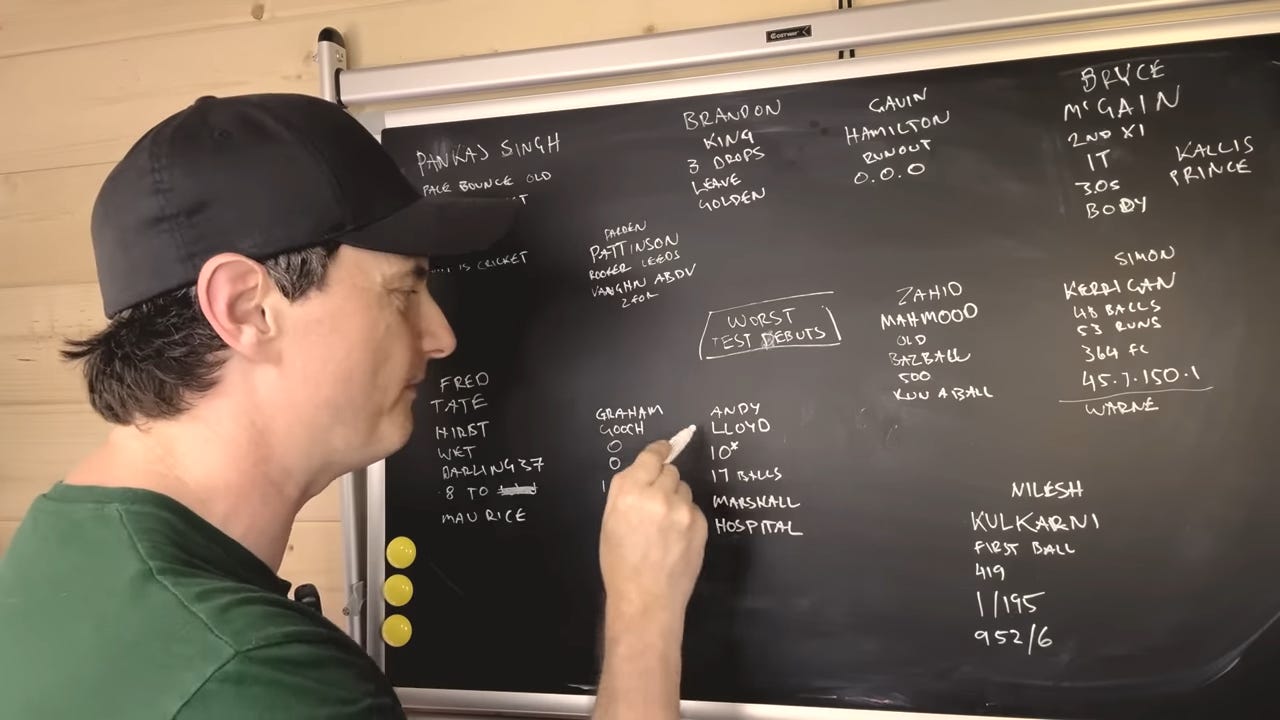 COSTWAY
PANKAJ SINGH
PACE BOUNCE OLD
IS CRICKET
BRANDON
KING
3 DROPS
LEAVE
GOLDEN
GAVIN
HAMILTON
RUNOUT
0.0.0
BRYCE
McGAIN
2ND XI
1T
3.05
BODY
KALLIS
PRINCE
DARREN
PATTINSON
ROOFER LEEDS
VAUGHN ABDV
2 FOR
WORST
TEST DEBUTS
ZAHID
MAHMOOD
OLD
BAZBALL
500
RUN A BALL
SIMON
KERRIGAN
48 BALLS
53 RUNS
364 FC
45.7.150.1
WARNE
FRED
TATE
HIRST
WET
DARLING 37
8 TO
MAURICE
GRAHAM
GOOCH
0
0
1
ANDY
LLOYD
10*
17 BALLS
MARSHALL
HOSPITAL
NILESH
KULKARNI
FIRST BALL
419
1/195
952/6